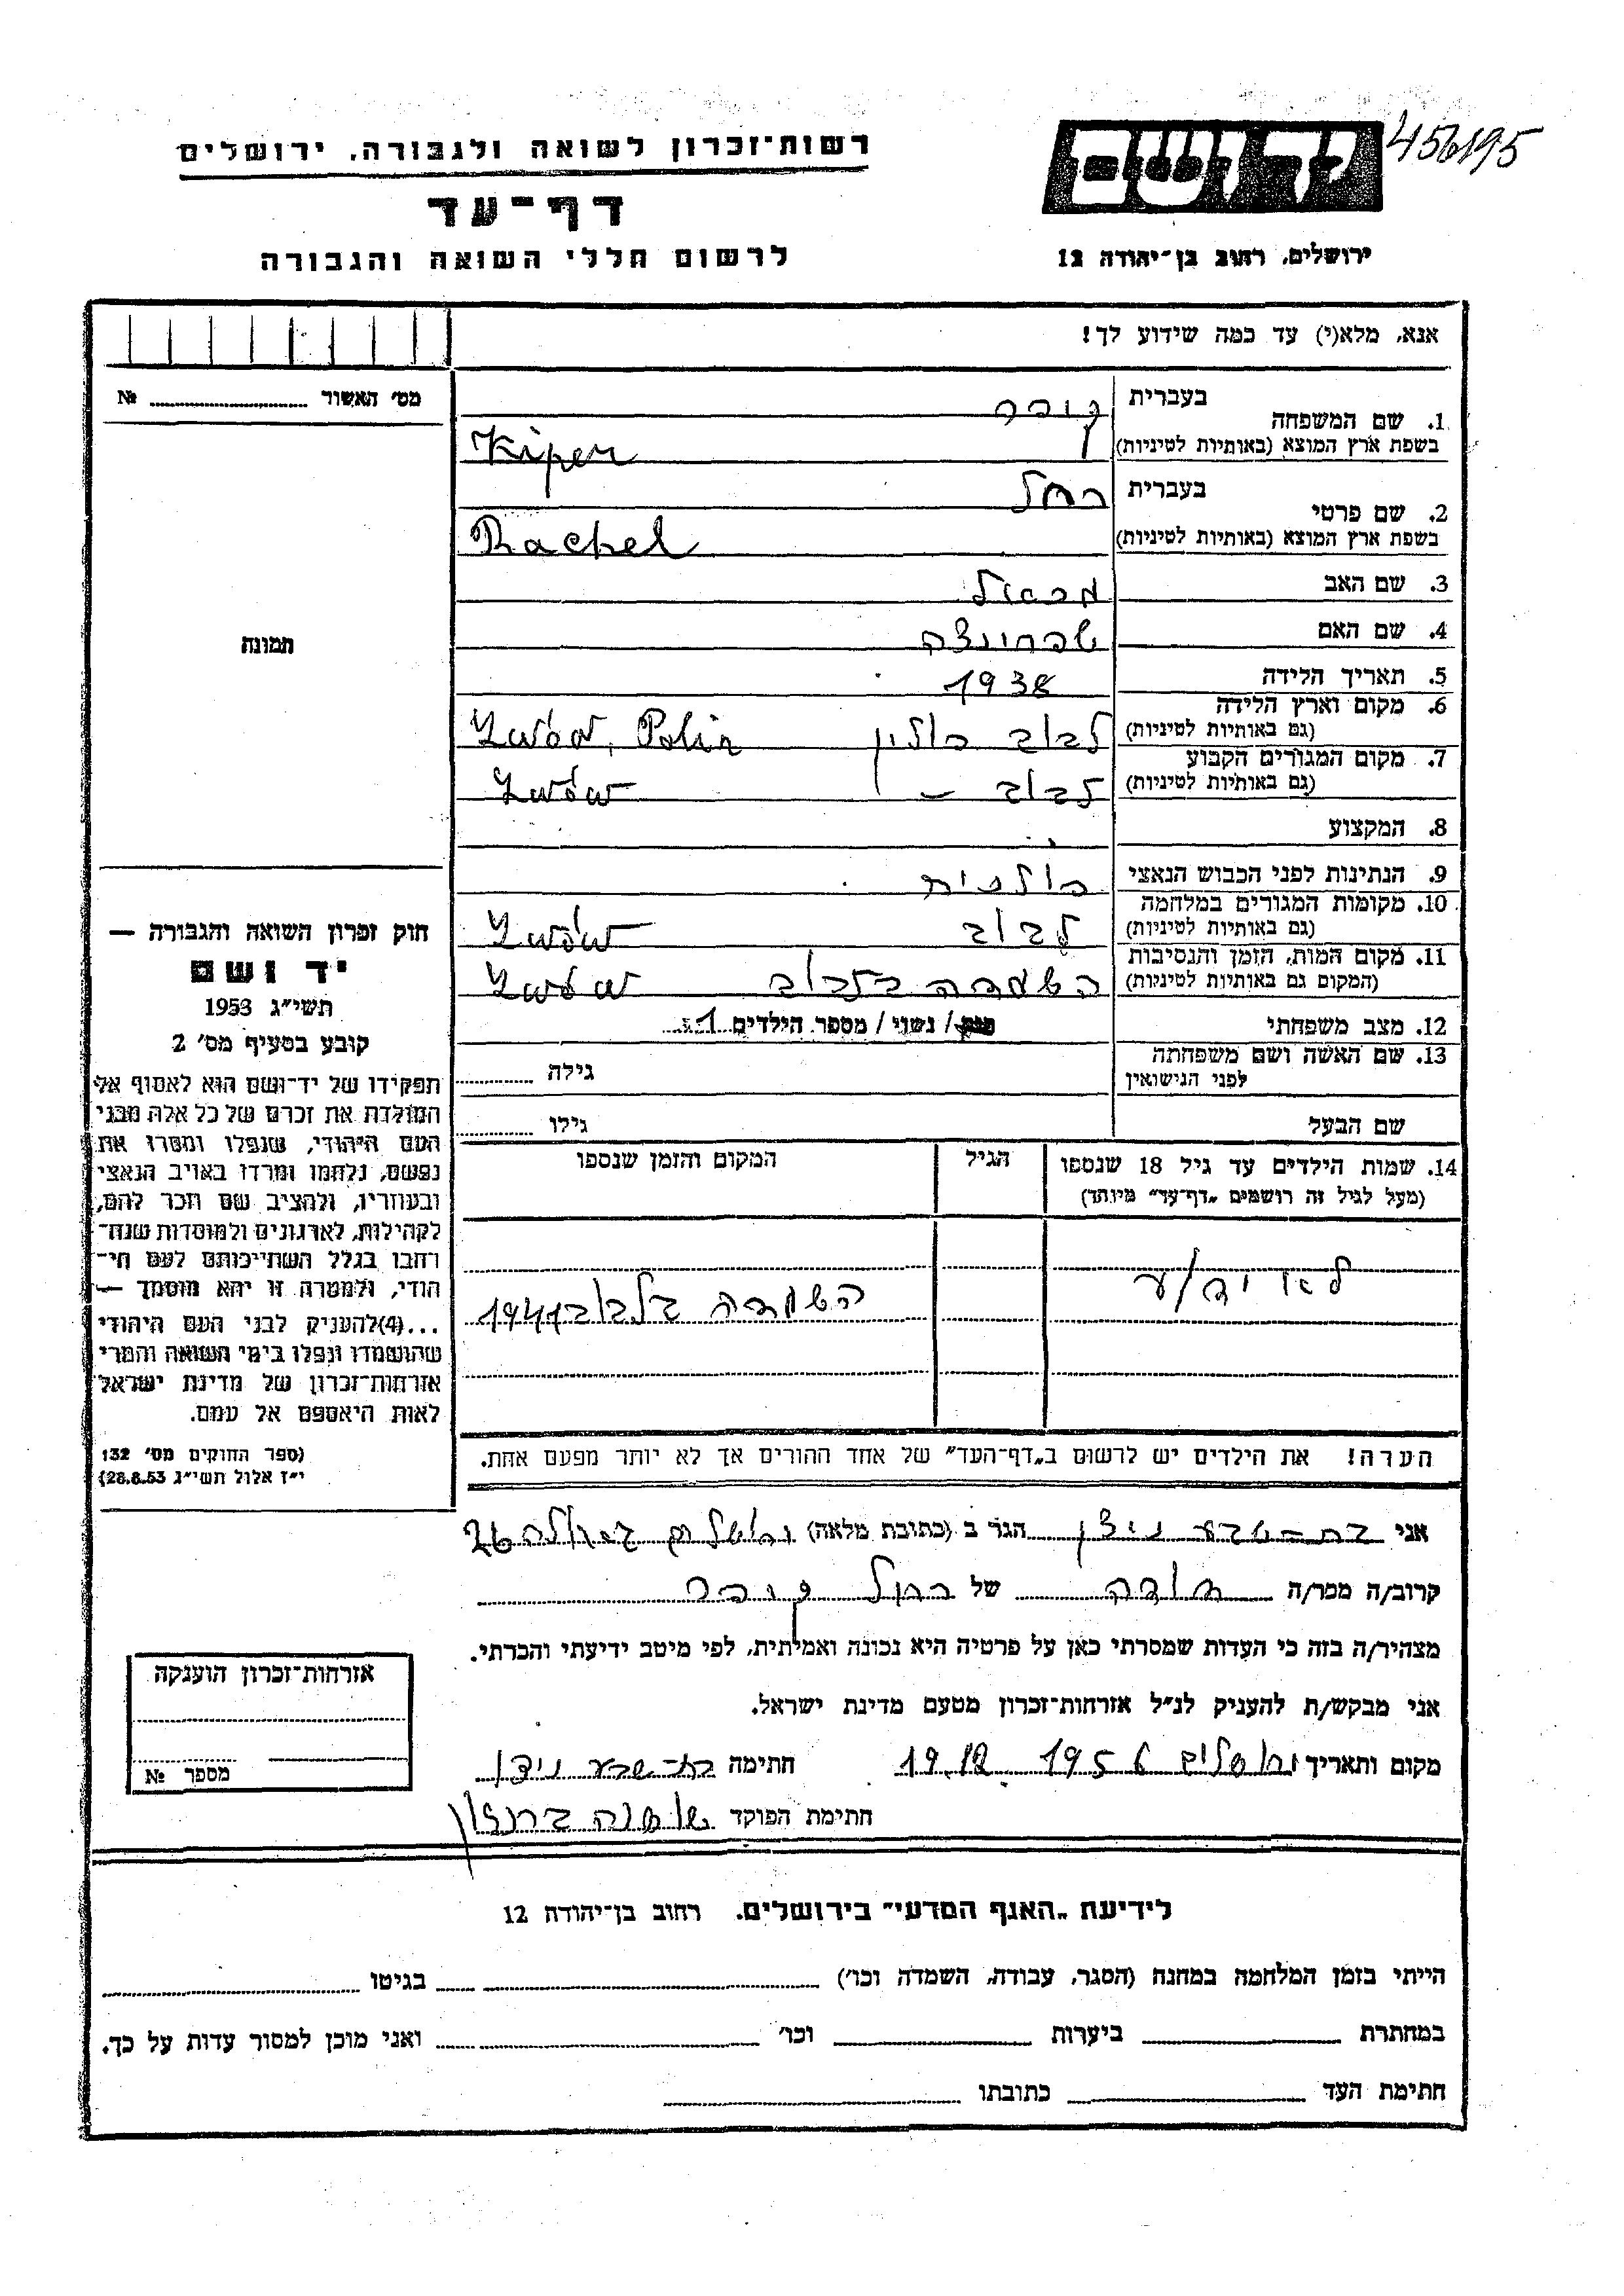 רשות־זכרון לשואה ולגבורה, ירושלים
דף־עד
לרשום חללי השואה והגבורה
יד ושם
456195
ירושלים, רחוב בן־יהודה 12
אנא, מלא(י) עד כמה שידוע לך!
מס' האשור № 
1. שם המשפחה
בעברית קופר
בשפת ארץ המוצא (באותיות לטיניות) Kiper
2. שם פרטי
בעברית רחל
בשפת ארץ המוצא (באותיות לטיניות) Rachel
3. שם האב
4. שם האם
5. תאריך הלידה 1938
6. מקום וארץ הלידה
(גם באותיות לטיניות) לבוב פולין Lwów, Polin
7. מקום המגורים הקבוע
(גם באותיות לטיניות) לבוב – Lwów
8. המקצוע
9. הנתינות לפני הכבוש הנאצי פולנית
10. מקומות המגורים במלחמה
(גם באותיות לטיניות) לבוב Lwów
11. מקום המות, הזמן והנסיבות
(המקום גם באותיות לטיניות) השמדה בלבוב Lwów
12. מצב משפחתי / נשוי / מספר הילדים 1
13. שם האשה ושם משפחתה
לפני הנישואין
גילה
שם הבעל גילו
14. שמות הילדים עד גיל 18 שנספו הגיל המקום והזמן שנספו
(מעל לגיל זה רושמים „דף־עד” מיוחד)
לא ידוע השמדה בלבוב 1941
הערה! את הילדים יש לרשום ב„דף־העד” של אחד ההורים אך לא יותר מפעם אחת.
תמונה
חוק זכרון השואה והגבורה —
יד ושם
תשי״ג 1953
קובע בסעיף מס' 2
תפקידו של יד־ושם הוא לאסוף אל
המולדת את זכרם של כל אלה מבני
העם היהודי, שנפלו ומסרו את
נפשם, נלחמו ומרדו באויב הנאצי
ובעוזריו, ולהציב שם וזכר להם,
לקהילות, לארגונים ולמוסדות שנח־
רבו בגלל השתייכותם לעם הי־
הודי, ולמטרה זו יהא מוסמך —
...(4)להעניק לבני העם היהודי
שהושמדו ונפלו בימי השואה והמרי
אזרחות־זכרון של מדינת ישראל
לאות היאספם אל עמם.
(ספר החוקים מס' 132
י״ז אלול תשי״ג 28.8.53)
אני בת־שבע ניצן הגר ב (כתובת מלאה) ירושלים גאולה 26
קרוב/ה מכר/ה דודה של רחל קופר
מצהיר/ה בזה כי העדות שמסרתי כאן על פרטיה היא נכונה ואמיתית, לפי מיטב ידיעתי והכרתי.
אני מבקש/ת להעניק לנ״ל אזרחות־זכרון מטעם מדינת ישראל.
מקום ותאריך ירושלים 1956 19.12 חתימה בת־שבע ניצן
חתימת הפוקד
אזרחות־זכרון הוענקה
מספר №
לידיעת „האגף המדעי” בירושלים, רחוב בן־יהודה 12
הייתי בזמן המלחמה במחנה (הסגר, עבודה, השמדה וכו') בגיטו
במחתרת ביערות וכו' ואני מוכן למסור עדות על כך.
חתימת העד כתובתו